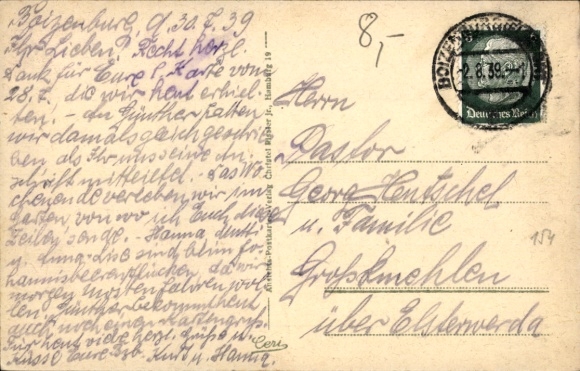 Boizenburg, d. 30.7.39
Ihr Lieben! Recht herzl.
Dank für Eure l. Karte vom
28.7. die wir heut erhiel-
ten. - An Günther hatten
wir damals gleich geschrie-
ben als Ihr uns seine An-
schrift mitteiltet. - Das Wo-
chenende verleben wir im
Garten, von wo ich Euch diese
Zeilen sende. - Hanna, Mutti
u. sind beim Jo-
hannisbeerenpflücken, da wir
morgen mosten fahren wol-
len. Günther bekommt heut
auch noch einen Kartengruß.
Für heut viele herzl. Grüße u.
Küsse Eure Kurt u. Hanna.
Ansichts-Postkartenverlag Christel Meister jr., Homburg 19
8,-
BOIZENBURG
-2.8.39
Deutsches Reich
Herrn
Pastor
Georg Hentschel
u. Familie
Großkmehlen
über Elsterwerda
154